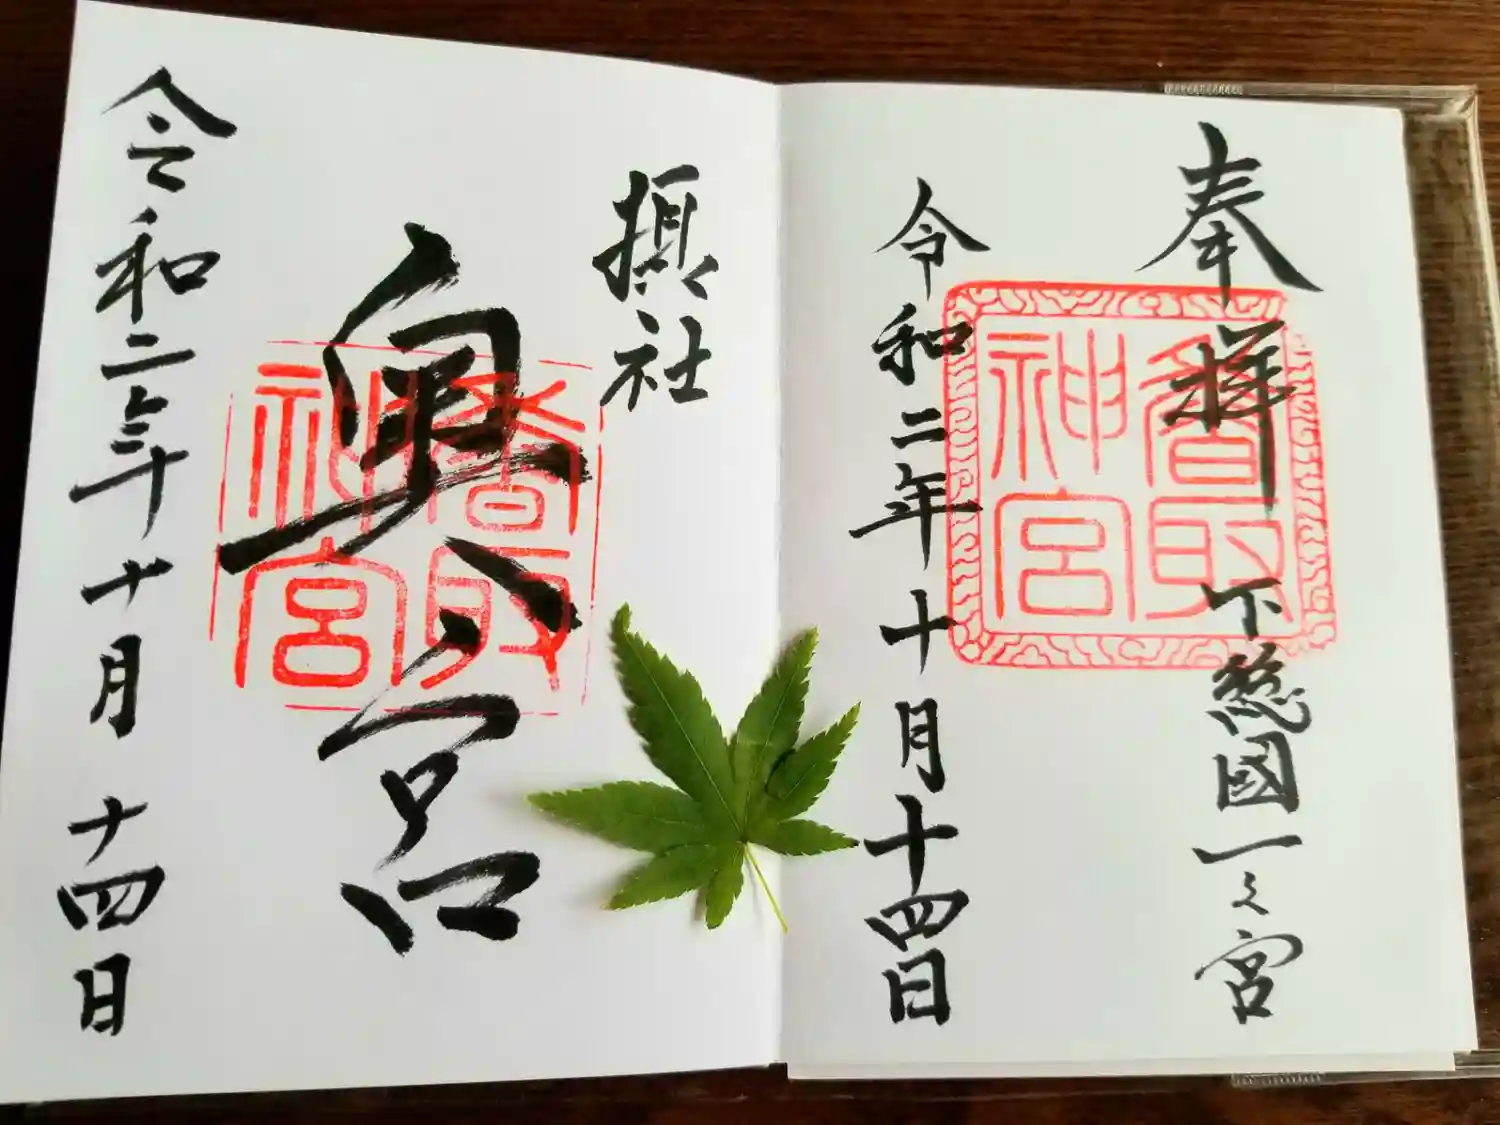 奉拝
下総國一之宮
香取
神宮
令和二年十月十四日
摂社
奥宮
香取
神宮
令和二年十月十四日